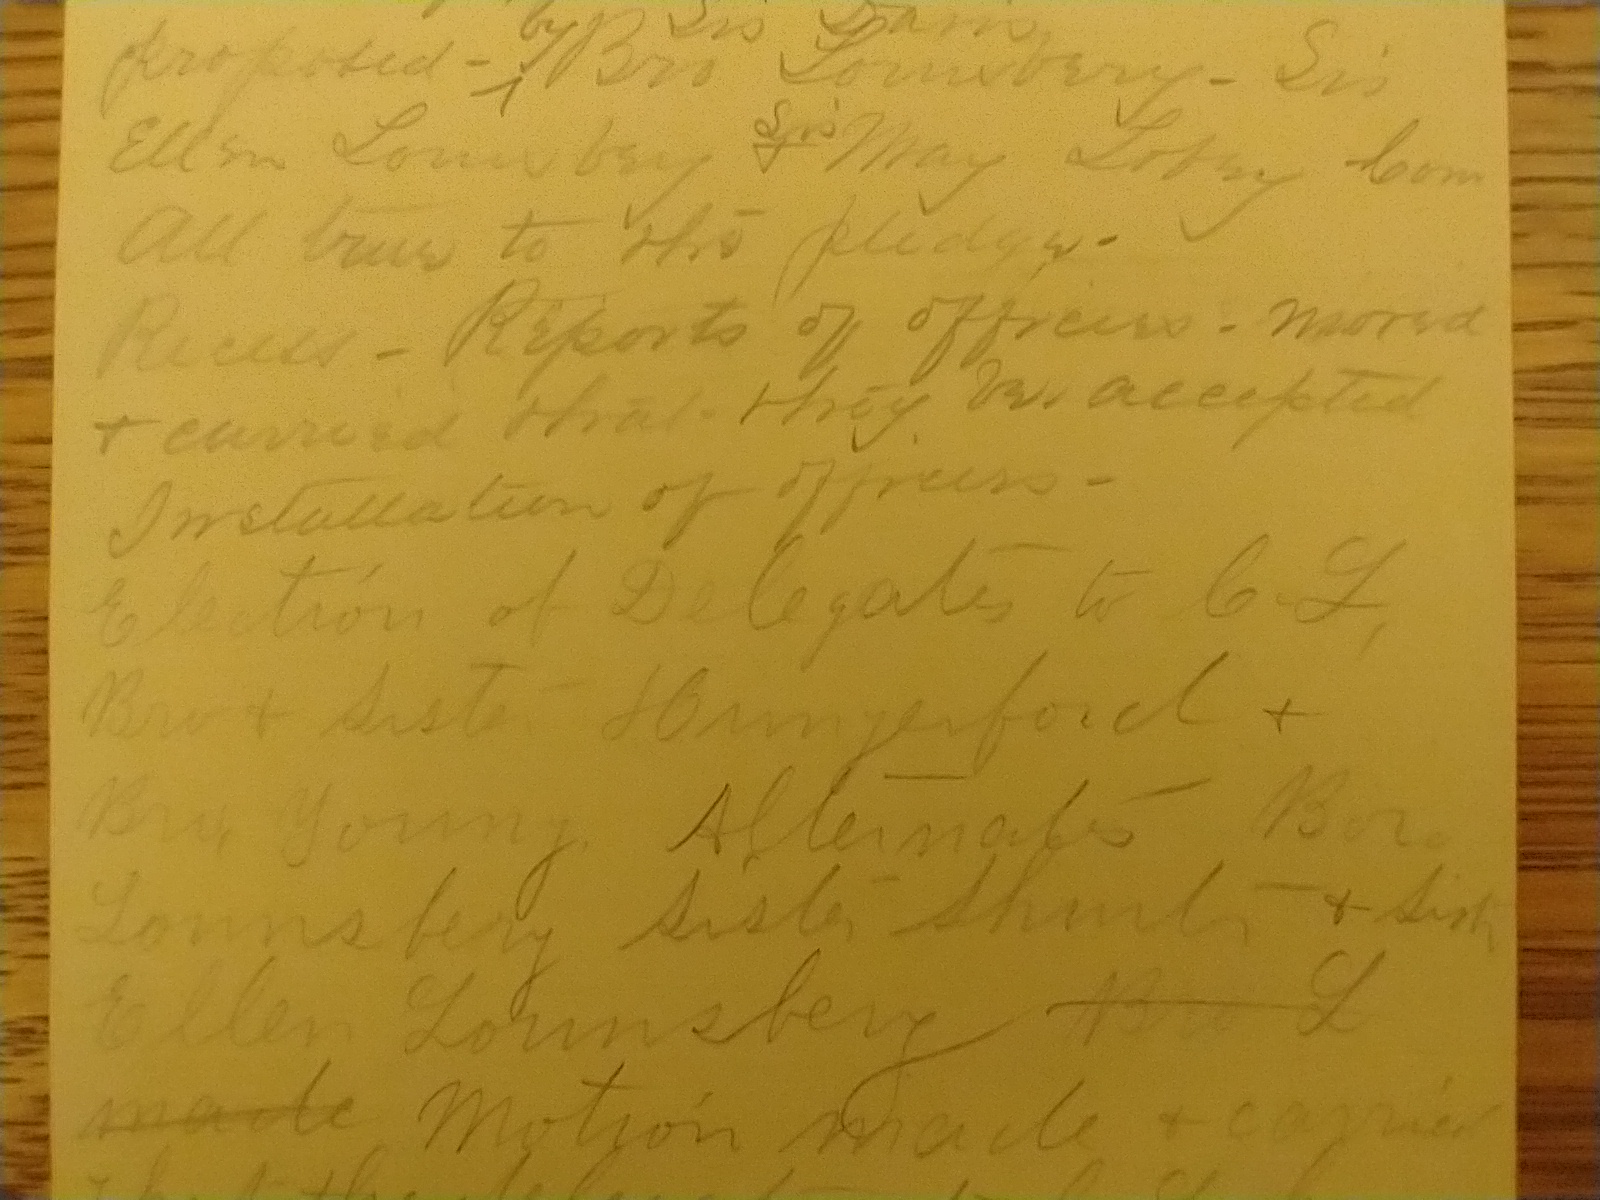 by Sis Davis
proposed - Bro Lounsbery - Sis
Ellen Lounsbery Sis May Lobey Com
All true to the pledge -
Recess - Reports of officers - moved
+ carried that they be accepted
Installation of officers -
Election of Delegates to C. L,
Bro + Sister Hungerford +
Bro, Young. Alternates Bro.
Lounsbery Sister Shurter + Sistr
Ellen Lounsbery Bro L
made Motion made + carried
that the